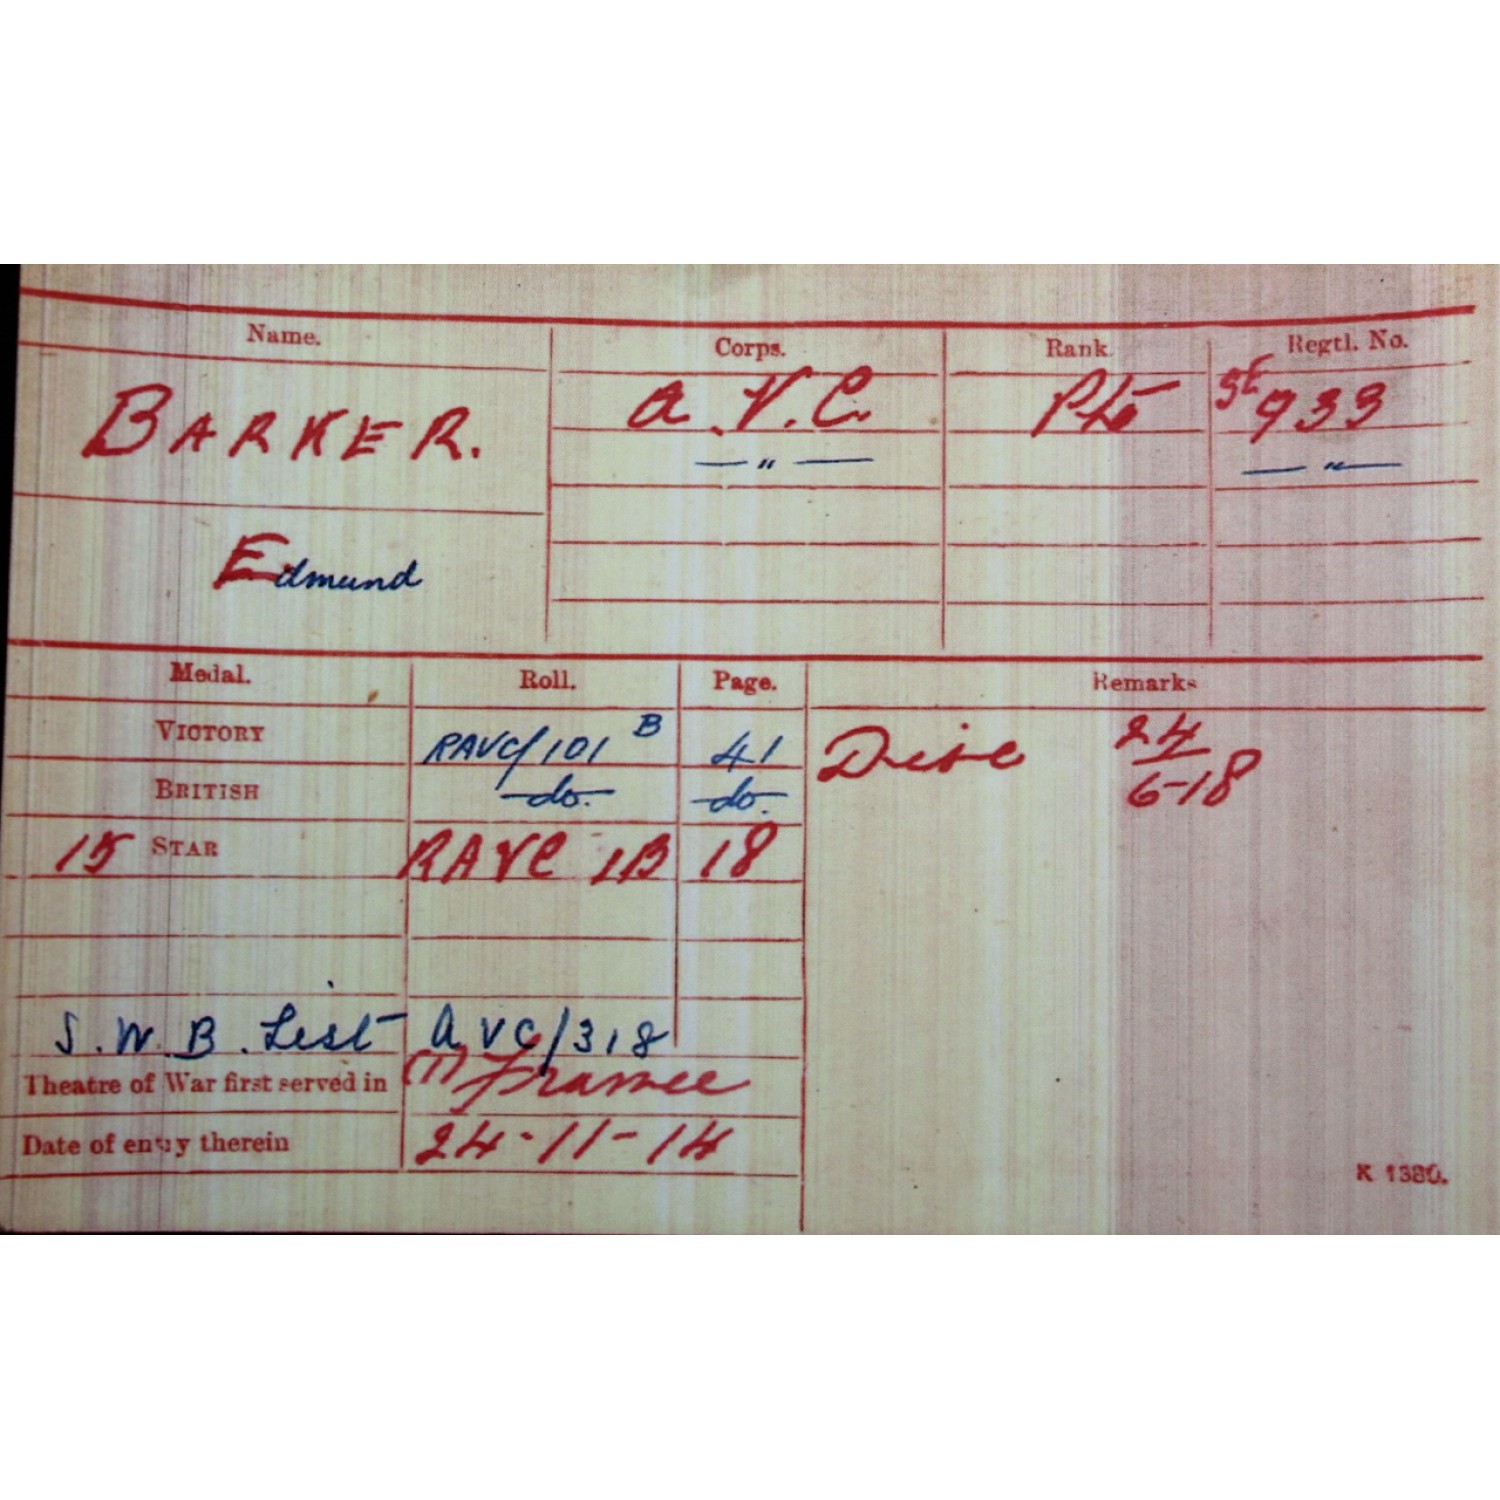 Name. Corps. Rank. Regtl. No.
BARKER. A.V.C. Pte SE 933
— " — — " —
Edmund
Medal. Roll. Page. Remarks
VICTORY RAVC/101 B 41 Disc 24/6-18
BRITISH do. do.
15 STAR RAVC 1B 18
S.W.B. List AVC/318
Theatre of War first served in (1) France
Date of entry therein 24-11-14
K 1380.